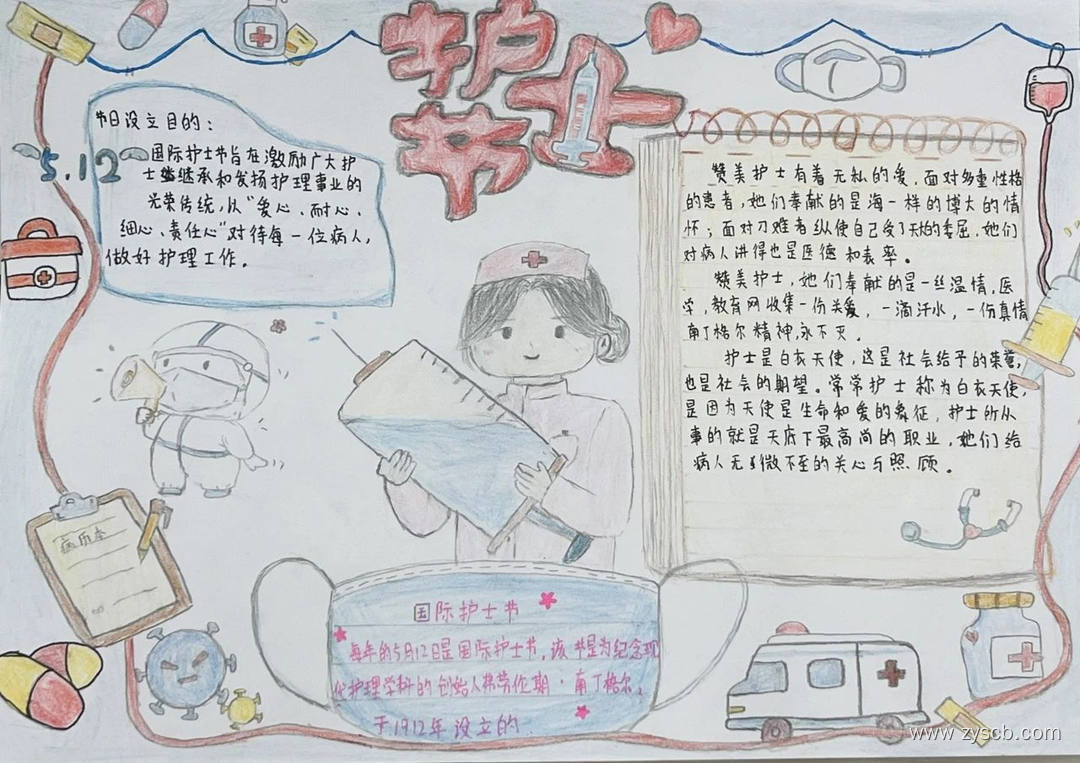 护士节
节日设立目的：
5.12
国际护士节旨在激励广大护
士继承和发扬护理事业的
光荣传统，以“爱心、耐心、
细心、责任心”对待每一位病人，
做好护理工作。
赞美护士有着无私的爱，面对多重性格
的患者，她们奉献的是海一样的博大的情
怀；面对刁难者纵使自己受了天大的委屈，她们
对病人讲得也是医德和表率。
赞美护士，她们奉献的是一丝温情，医
学，教育网收集一份关爱，一滴汗水，一份真情
南丁格尔精神，永不灭。
护士是白衣天使，这是社会给予的荣誉，
也是社会的期望。常常护士称为白衣天使，
是因为天使是生命和爱的象征，护士所从
事的就是天底下最高尚的职业，她们给
病人无微不至的关心与照顾。
病历本
国际护士节
每年的5月12日是国际护士节，该节是为纪念现
代护理学科的创始人弗劳伦斯·南丁格尔，
于1912年设立的.
www.zyscb.com